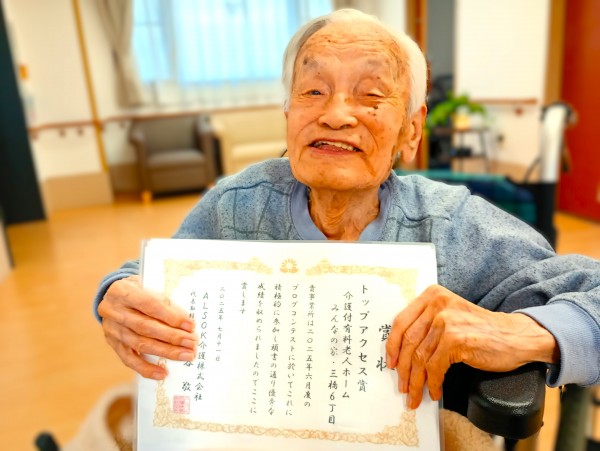 賞状
トップアクセス賞
介護付有料老人ホーム
みんなの家・三橋6丁目
貴事業所は二〇二五年六月度の
ブログコンテストに於いてこれに
積極的に参加し頭書の通り優秀な
成績を収められましたのでここに
賞します
二〇二五年 七月十一日
ALSOK介護株式会社
代表取締
谷 敬